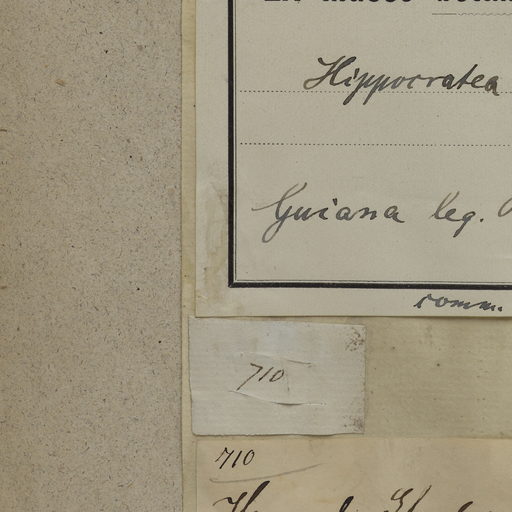 Hippocratea
Guiana leg.
comm.
710
710